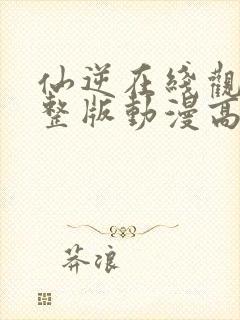 仙逆在綫觀
整版動漫高
莽浪